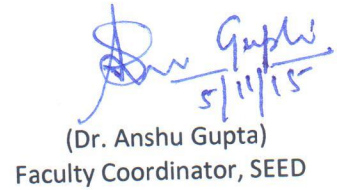 Gupta
5/11/15
(Dr. Anshu Gupta)
Faculty Coordinator, SEED